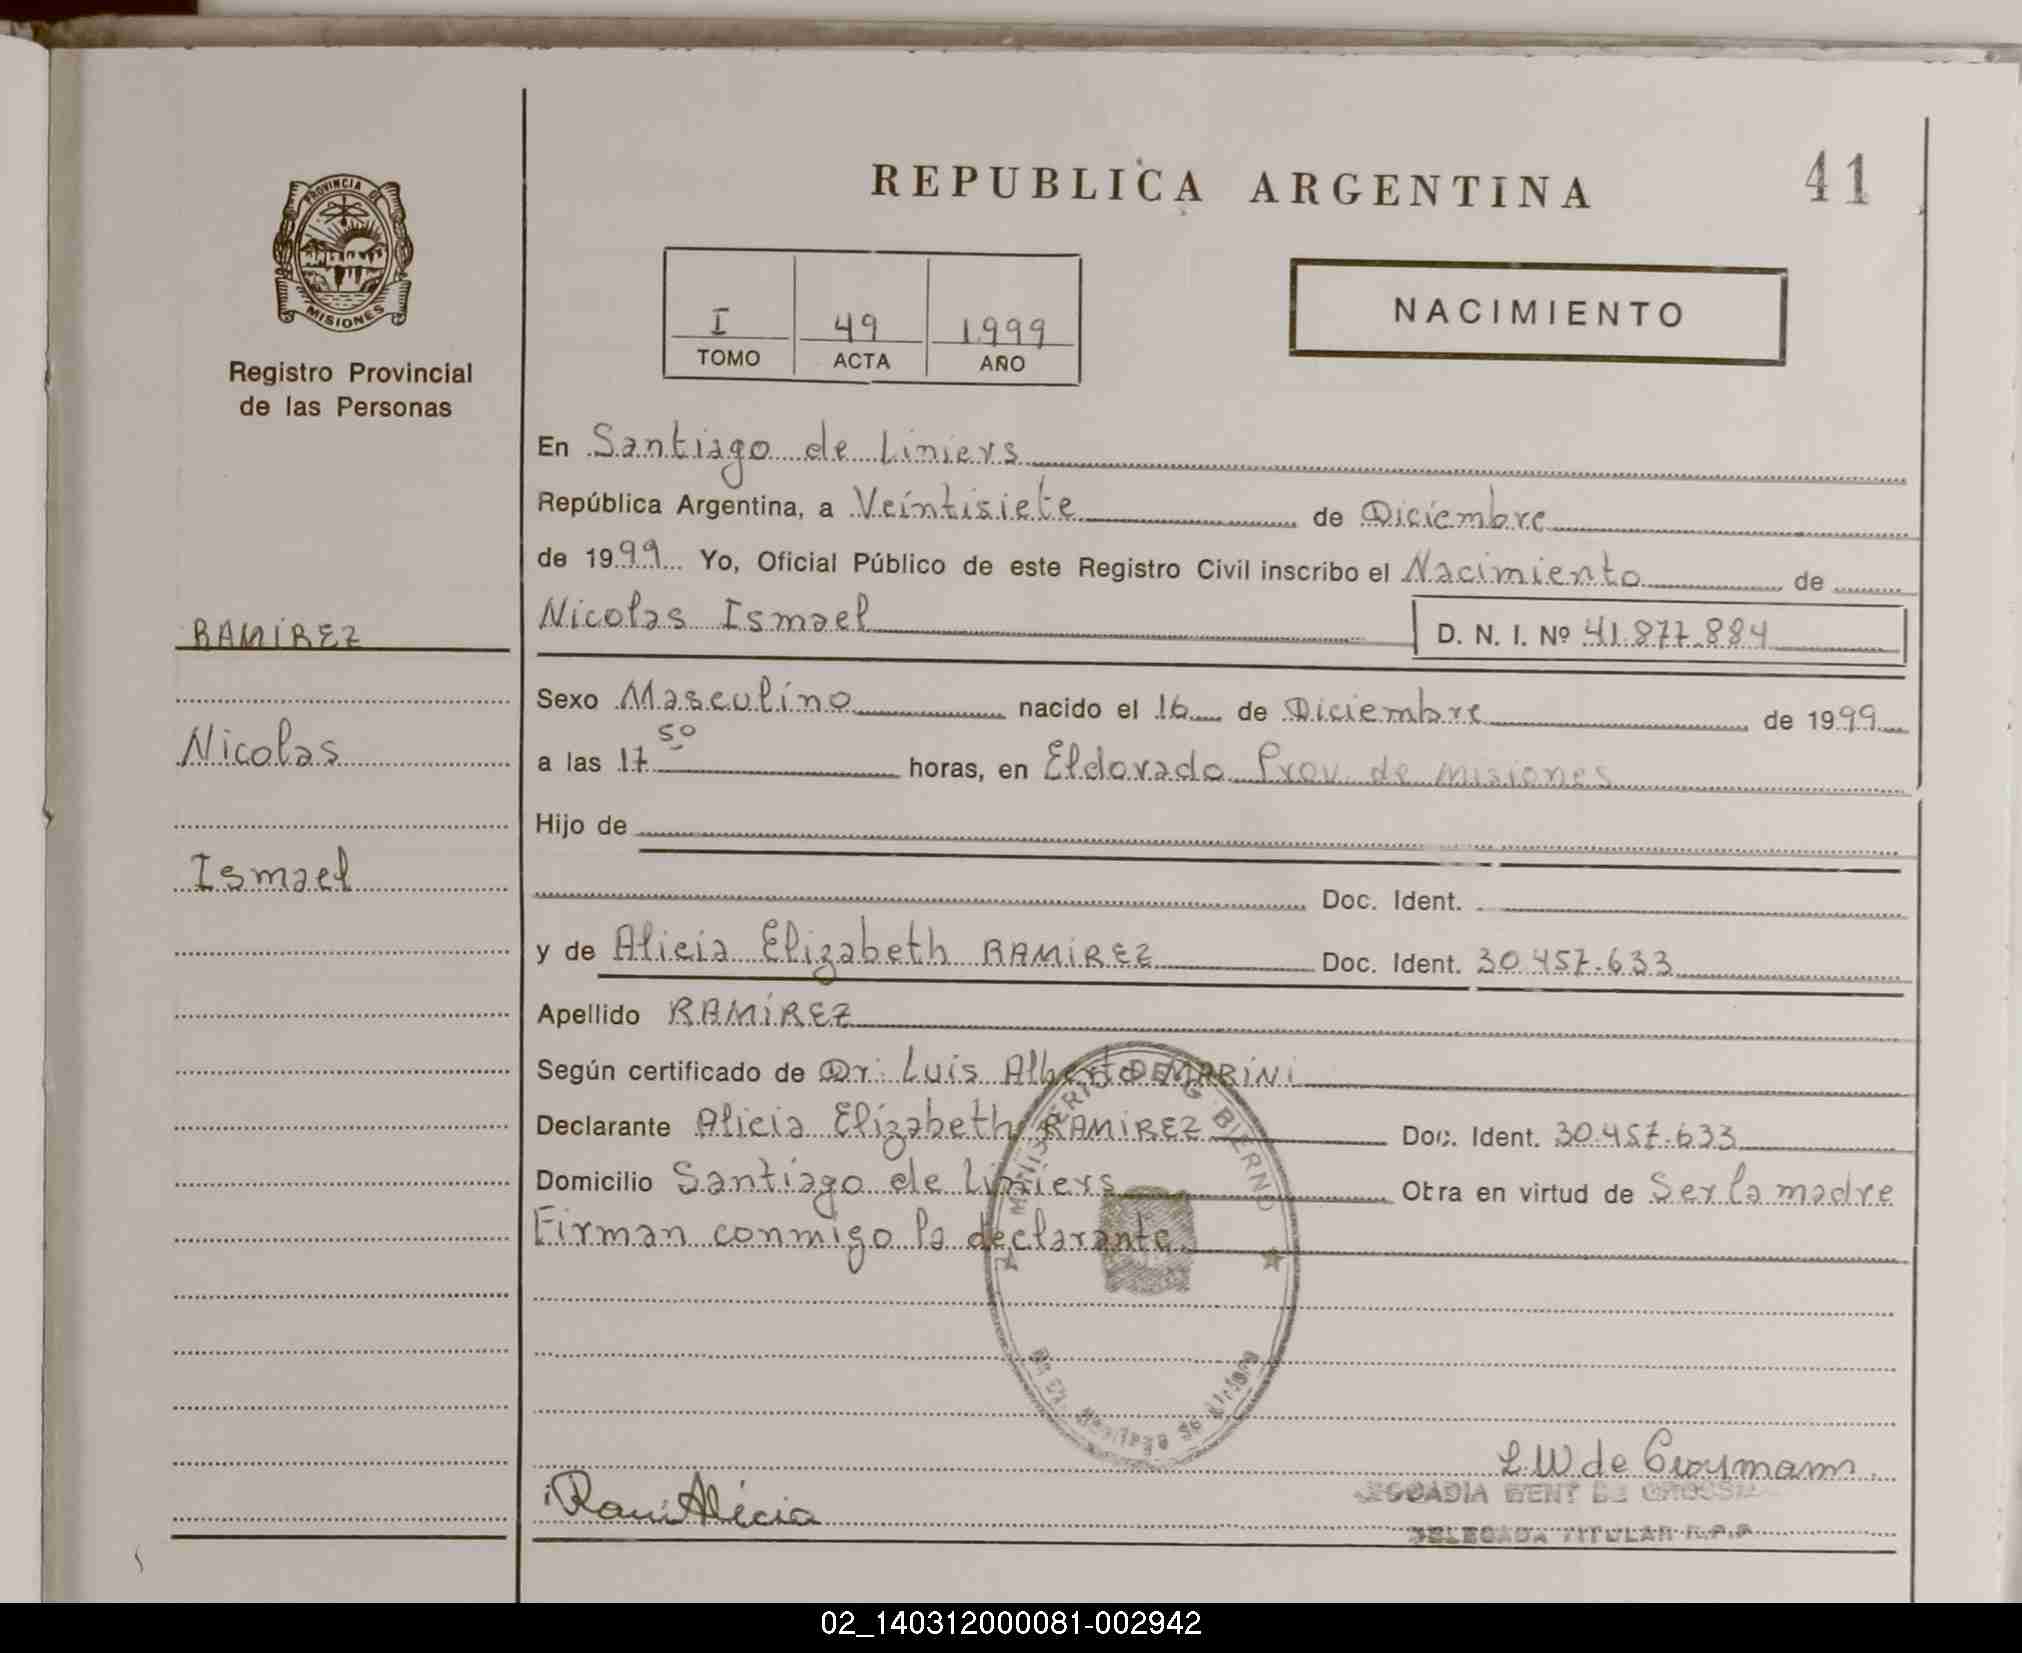 REPUBLICA ARGENTINA
41
PROVINCIA DE
MISIONES
Registro Provincial
de las Personas
I 49 1.999
TOMO ACTA AÑO
NACIMIENTO
En Santiago de Liniers
República Argentina, a Veintisiete de Diciembre
de 1999 Yo, Oficial Público de este Registro Civil inscribo el Nacimiento de
Nicolas Ismael D. N. I. Nº 41.877.884
RAMÍREZ
Sexo Masculino nacido el 16 de Diciembre de 1999
Nicolas
a las 17 50 horas, en Eldorado Prov. de Misiones
Hijo de
Ismael
Doc. Ident.
y de Alicia Elizabeth RAMÍREZ Doc. Ident. 30.457.633
Apellido RAMÍREZ
Según certificado de Dr: Luis Alberto DEMARINI
Declarante Alicia Elízabeth RAMÍREZ Doc. Ident. 30.457.633
Domicilio Santiago de Liniers Obra en virtud de Ser la madre
Firman conmigo la declarante
MINISTERIO DE GOBIERNO
L W de
Rami Alicia
WENT DE
DELEGADA TITULAR R.P.P.
02_140312000081-002942